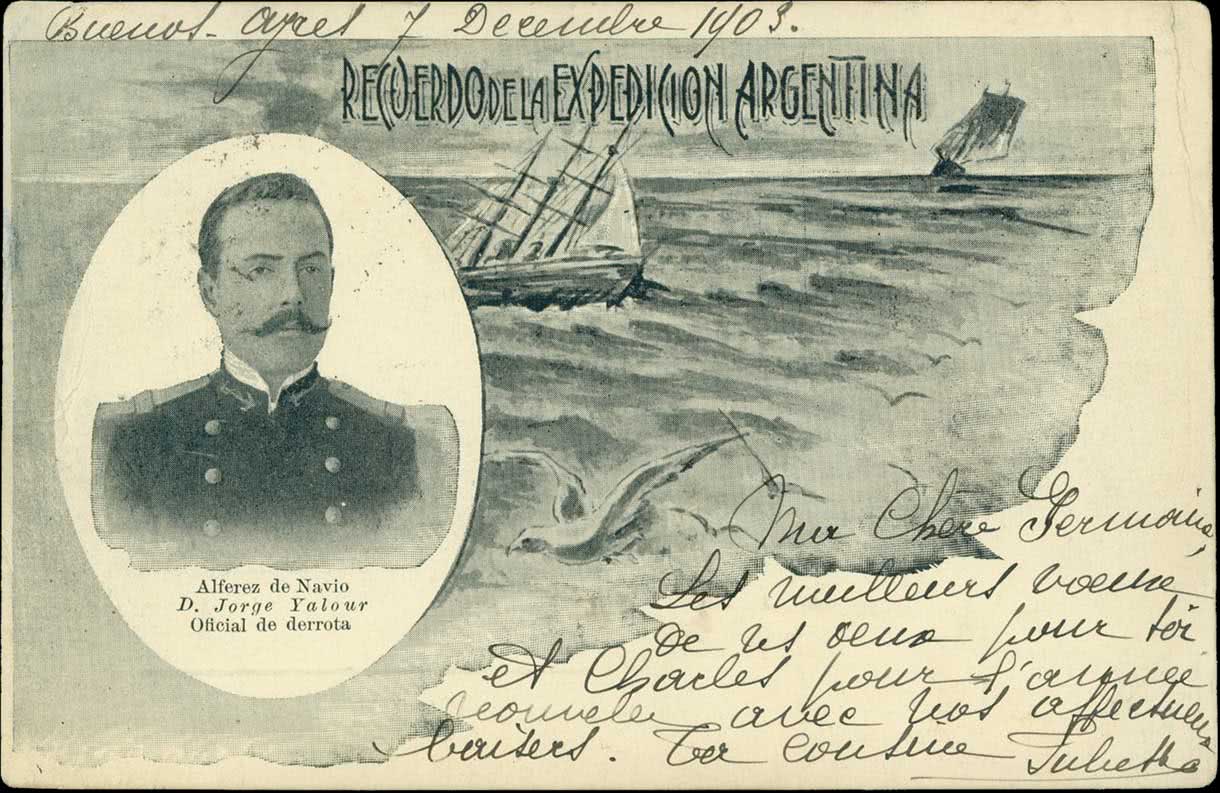 Buenos-Ayres 7 Decembre 1903.
RECUERDO DE LA EXPEDICION ARGENTINA
Alferez de Navio
D. Jorge Yalour
Oficial de derrota
Ma Chère Germaine,
Les meilleurs voeux
de ns deux pour toi
et Charles pour l'année
nouvelle avec nos affectueux
baisers. Ta cousine Juliette